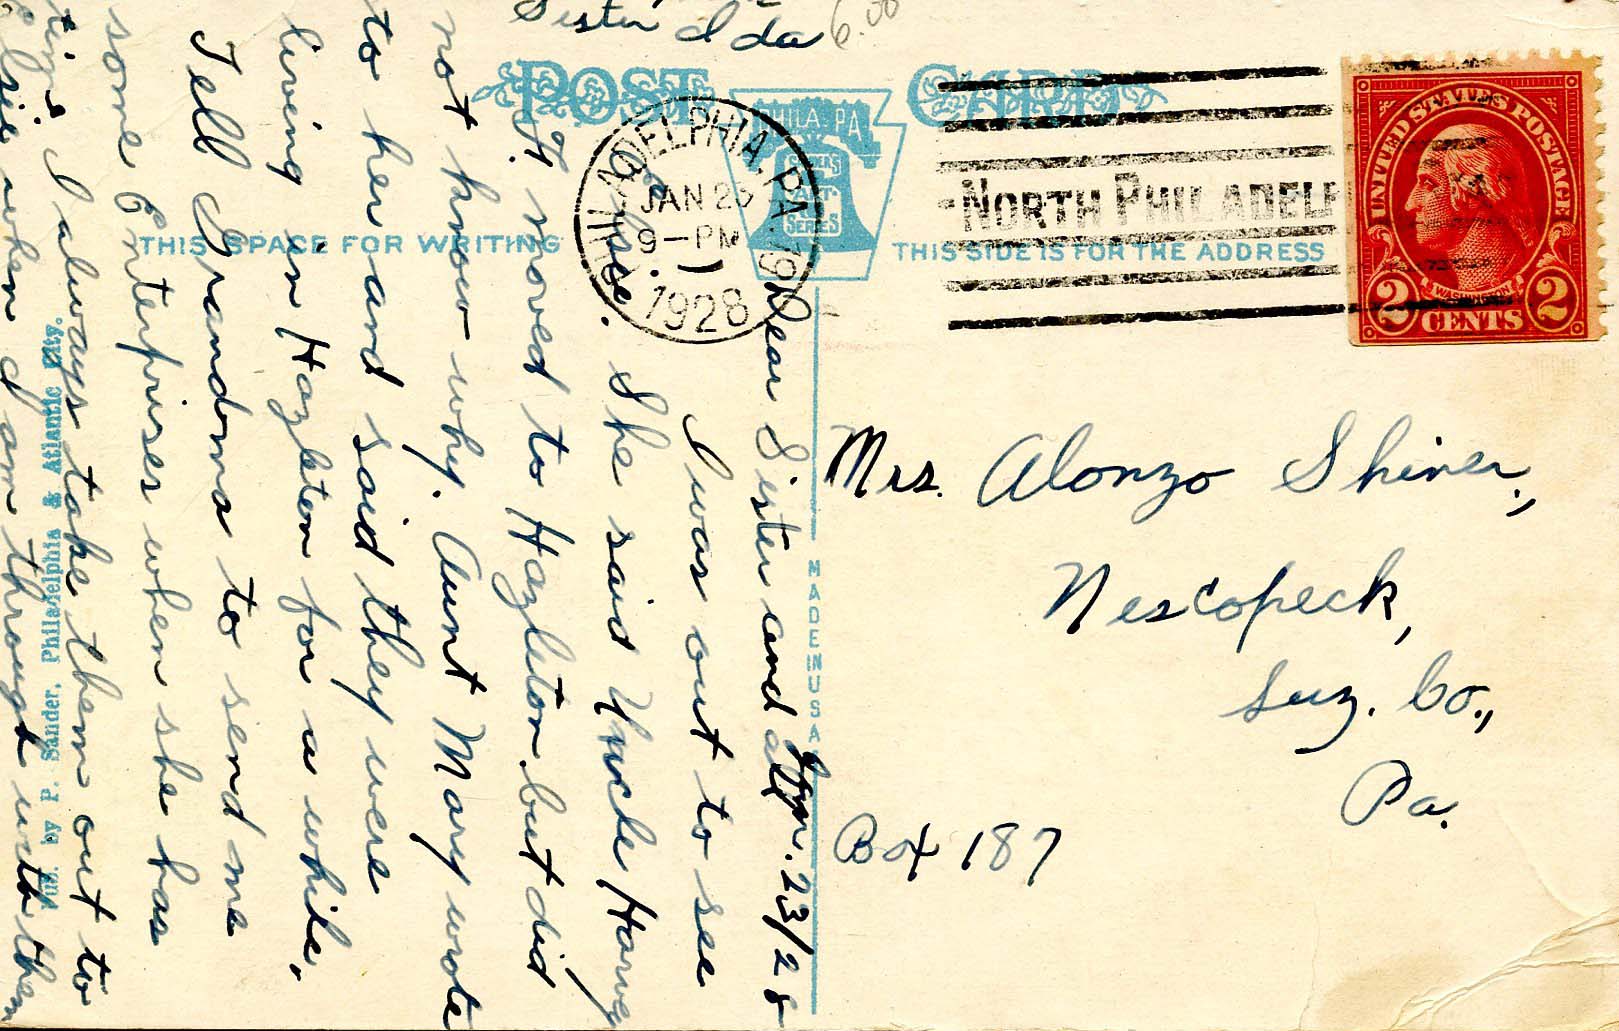 Sister Ida
6.00
POST CARD
PHILA. PA.
SERIES
PHILADELPHIA, PA.
JAN 23
9-PM
1928
NORTH PHILADELP
UNITED STATES POSTAGE
WASHINGTON
2 CENTS 2
THIS SPACE FOR WRITING
THIS SIDE IS FOR THE ADDRESS
Jan. 23/28
Dear Sister and all
I was out to see
Elsie. She said Uncle Harvey
H. moved to Hazleton but did
not know why. Aunt Mary wrote
to her and said they were
living in Hazleton for a while.
Tell Grandma to send me
some Enterprises when she has
time I always take them out to
Elsie when I am through with them
Pub. by P. Sander, Philadelphia & Atlantic City.
MADE IN USA
Mrs. Alonzo Shiner,
Nescopeck,
Luz. Co.,
Pa.
Box 187